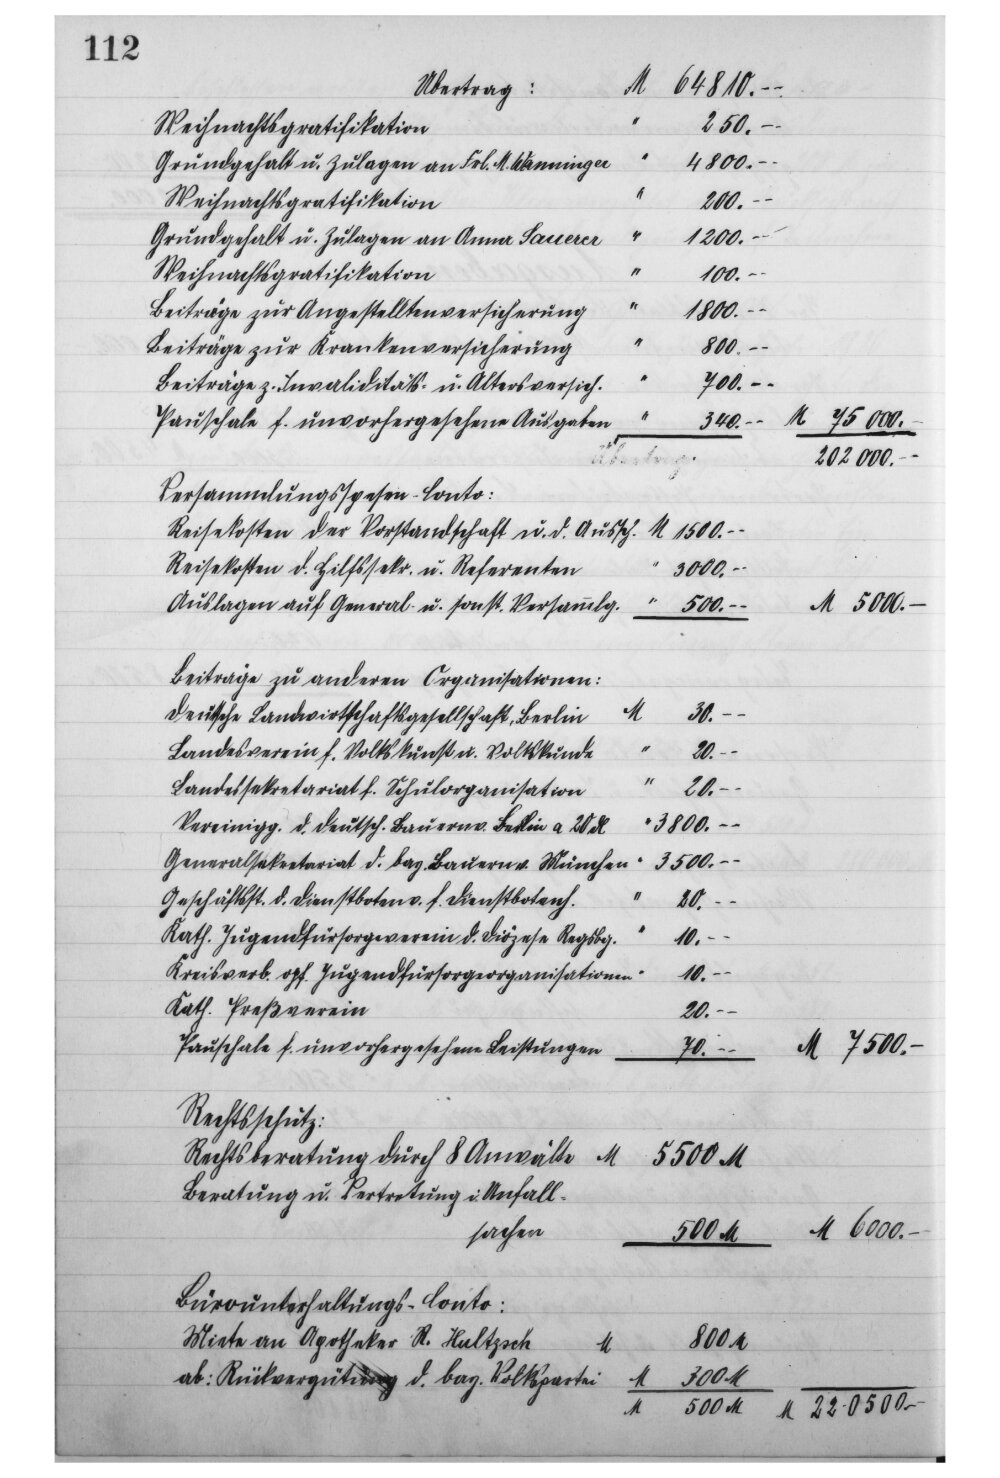 112
Übertrag : M 64810.--
Weihnachtsgratifikation " 250.--
Grundgehalt u. Zulagen an Frl. M. Wanninger " 4800.--
Weihnachtsgratifikation " 200.--
Grundgehalt u. Zulagen an Anna Sauerer " 1200.--
Weihnachtsgratifikation " 100.--
Beiträge zur Angestelltenversicherung " 1800.--
Beiträge zur Krankenversicherung " 800.--
Beiträge z. Invaliditäts- u. Altersversich. " 700.--
Pauschale f. unvorhergesehene Ausgaben " 340.-- M 75 000.-
Übertrag: 202 000.--
Versammlungsspesen-Conto:
Reisekosten der Vorstandschaft u. d. Aussch. M 1500.--
Reisekosten d. Hilfssekr. u. Referenten " 3000.--
Auslagen auf General- u. sonst. Versam̄lg. " 500.-- M 5000.-
Beiträge zu anderen Organisationen:
Deutsche Landwirtschaftsgesellschaft, Berlin M 30.--
Landesverein f. Volkskunst u. Volkskunde " 20.--
Landessekretariat f. Schulorganisation " 20.--
Vereinigg. d. deutsch. Bauernv. Berlin a 20 " 3800.--
Generalsekretariat d. bay. Bauernv. München " 3500.--
Geschäftsst. d. Dienstbotenv. f. Dienstbotenh. " 20.--
Kath. Jugendfürsorgeverein d. Diözese Regsbg. " 10.--
Kreisverb. opf. Jugendfürsorgeorganisationen " 10.--
Kath. Preßverein 20.--
Pauschale f. unvorhergesehene Leistungen 70.-- M 7500.-
Rechtsschutz:
Rechtsberatung durch 8 Anwälte M 5500 M
Beratung u. Vertretung i. Unfall-
sachen 500 M M 6000.-
Bürounterhaltungs-Conto:
Miete an Apotheker R. Hultzsch M 800 M
ab: Rückvergütung d. bay. Volkspartei M 300 M
M 500 M M 220500.-